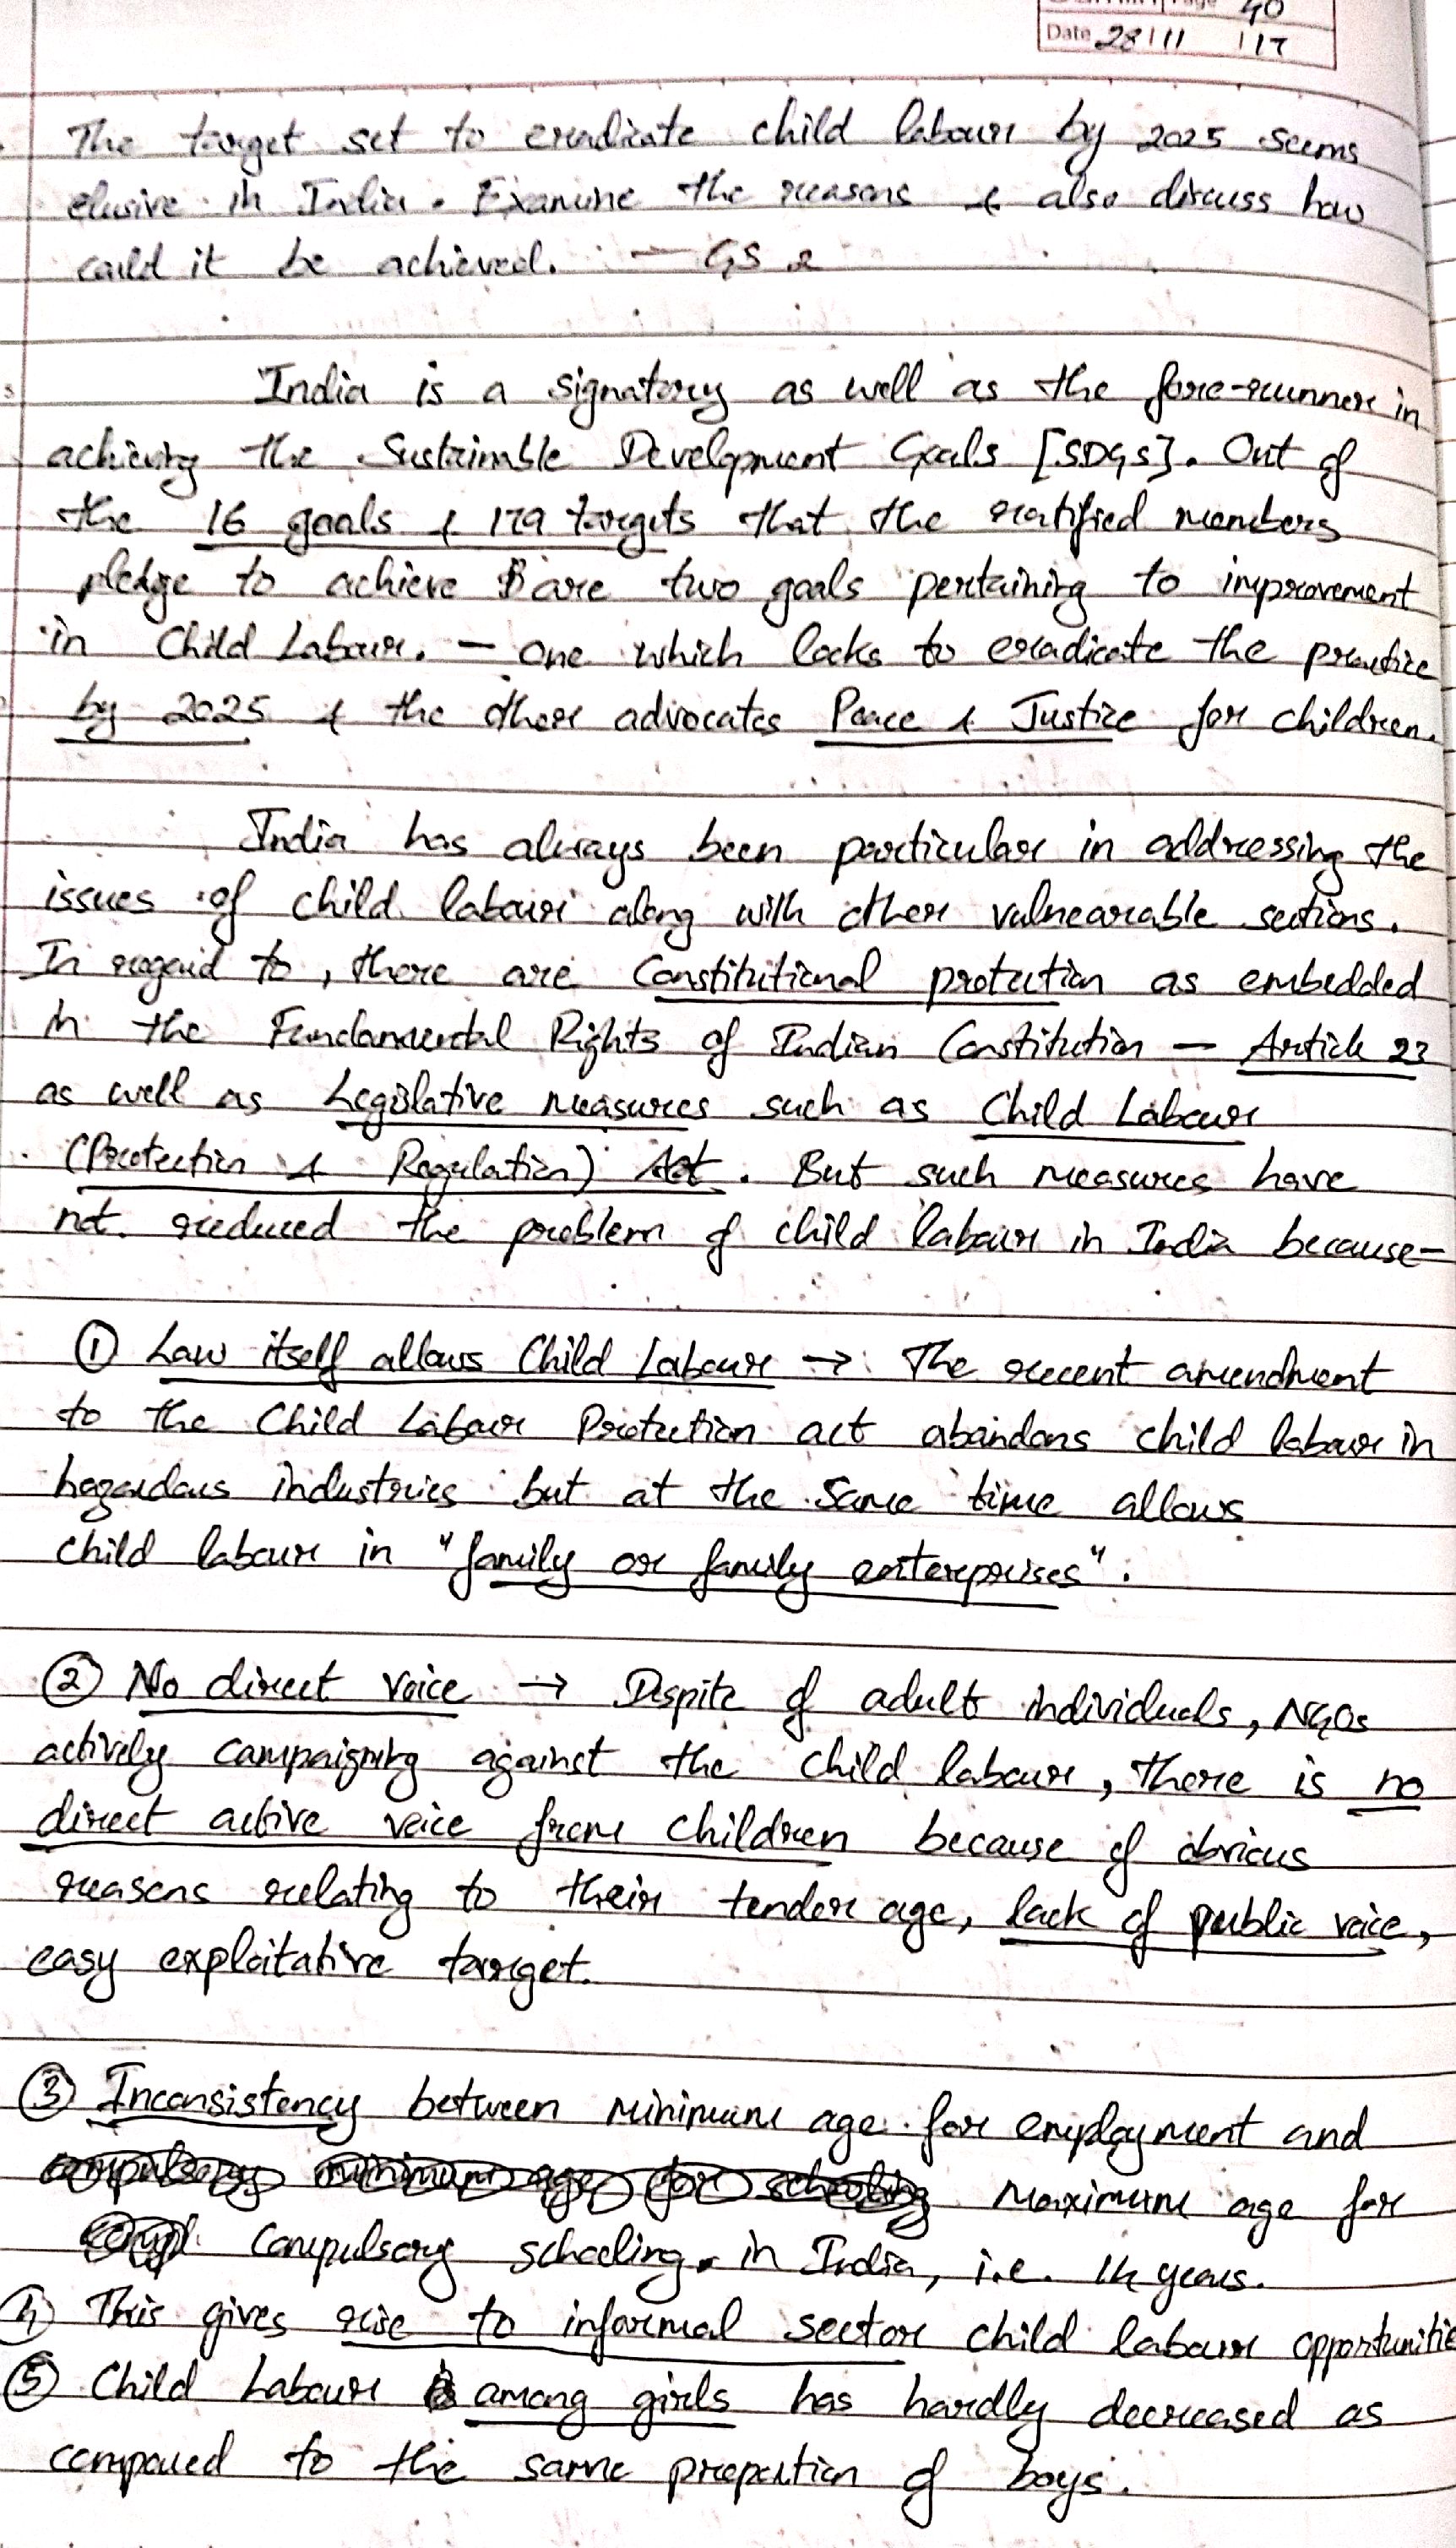 Page 40
Date 28/11/17
The target set to eradicate child labour by 2025 seems
elusive in India. Examine the reasons & also discuss how
could it be achieved. — GS 2
India is a signatory as well as the fore-runner in
achieving the Sustaimble Development Goals [SDGs]. Out of
the 16 goals & 179 targets that the ratified members
pledge to achieve are two goals pertaining to improvement
in Child Labour. — one which looks to eradicate the practice
by 2025 & the other advocates Peace & Justice for children.
India has always been particular in addressing the
issues of child labour along with other vulnearable sections.
In regard to, there are Constitutional protection as embedded
in the Fundamental Rights of Indian Constitution — Article 23
as well as Legislative measures such as Child Labour
(Protection & Regulation) Act. But such measures have
not reduced the problem of child labour in India because—
① Law itself allows Child Labour → The recent amendment
to the Child Labour Protection act abandons child labour in
hazardous industries but at the same time allows
child labour in "family or family enterprises".
② No direct voice → Despite of adult individuals, NGOs
actively campaigning against the child labour, there is no
direct active voice from children because of obvious
reasons relating to their tender age, lack of public voice,
easy exploitative target.
③ Inconsistency between minimum age for employment and
compulsory minimum age for schooling maximum age for
compulsory schooling. in India, i.e. 14 years.
④ This gives rise to informal sector child labour opportunitie
⑤ Child Labour among girls has hardly decreased as
compared to the same proportion of boys.